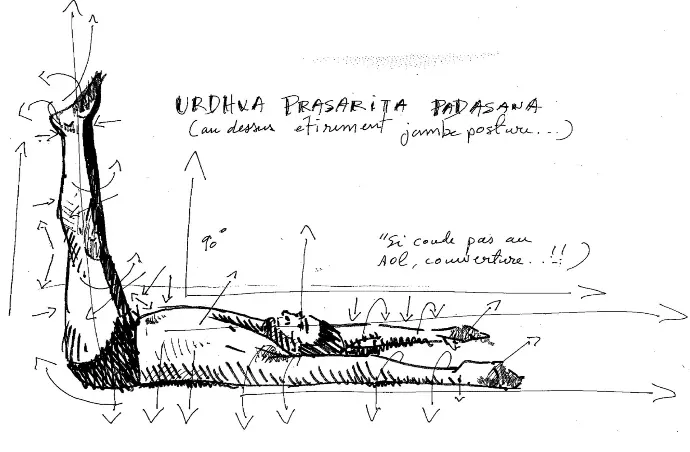 URDHVA PRASARITA PADASANA
(au dessus etirement jambe posture...)
90°
"Si coude pas au
sol, couverture...!!)